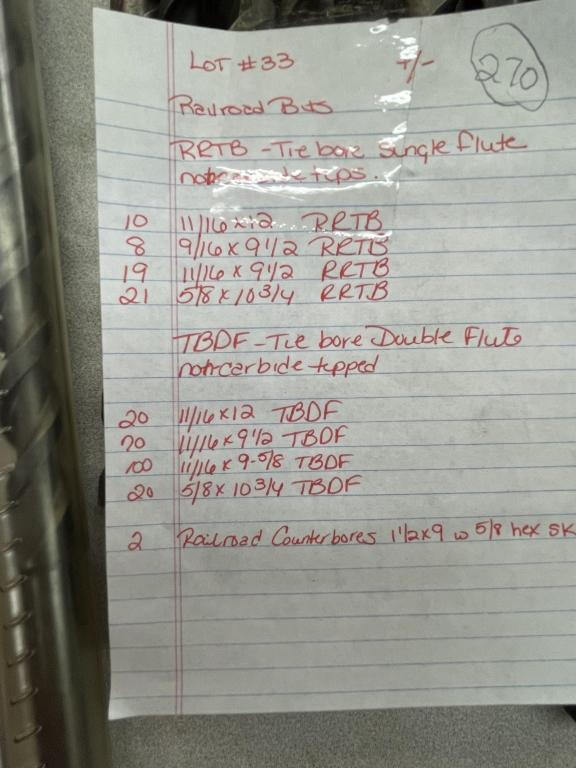 LOT #33 +/- 270
Railroad Bits
RRTB - Tie bore single flute
not carbide tips.
10 11/16 x 12 RRTB
8 9/16 x 9 1/2 RRTB
19 11/16 x 9 1/2 RRTB
21 5/8 x 10 3/4 RRTB
TBDF - Tie bore Double Flute
not carbide tipped
20 11/16 x 12 TBDF
70 11/16 x 9 1/2 TBDF
100 11/16 x 9-5/8 TBDF
20 5/8 x 10 3/4 TBDF
2 Railroad Counterbores 1 1/2 x 9 w 5/8 hex sk